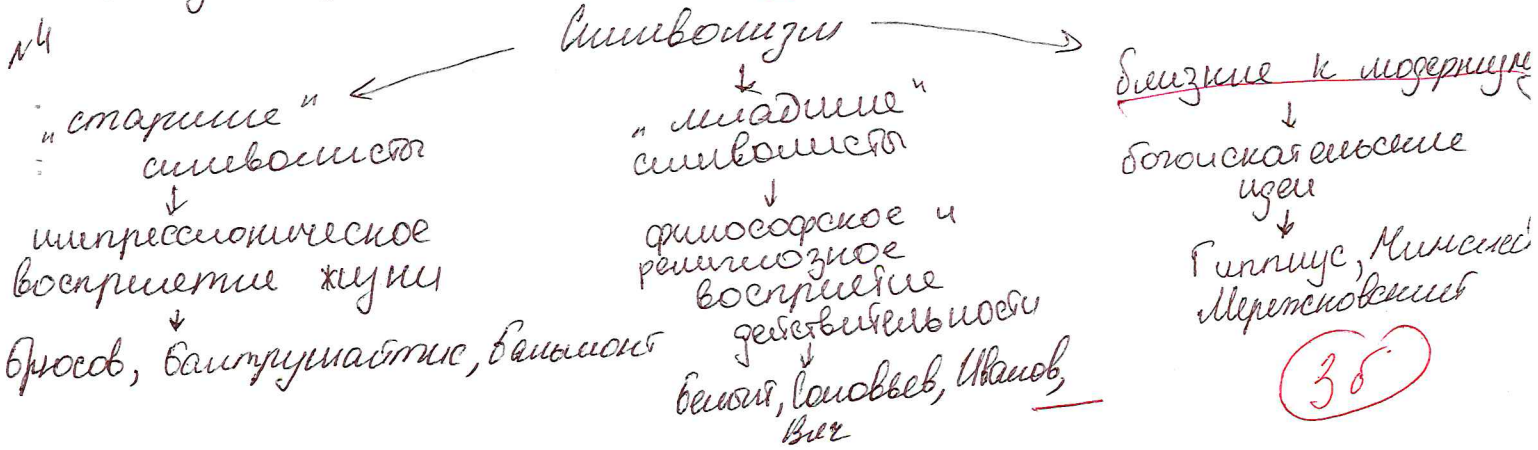 №4
Символизм
"старшие"
символисты
импрессионическое
восприятие жизни
Брюсов, Балтрушайтис, Бальмонт
"младшие"
символисты
философское и
религиозное
восприятие
действительности
Белый, Соловьев, Иванов,
Вяч
близкие к модернизм
богоискательские
идеи
Гиппиус, Минский
Мережковский
3 б